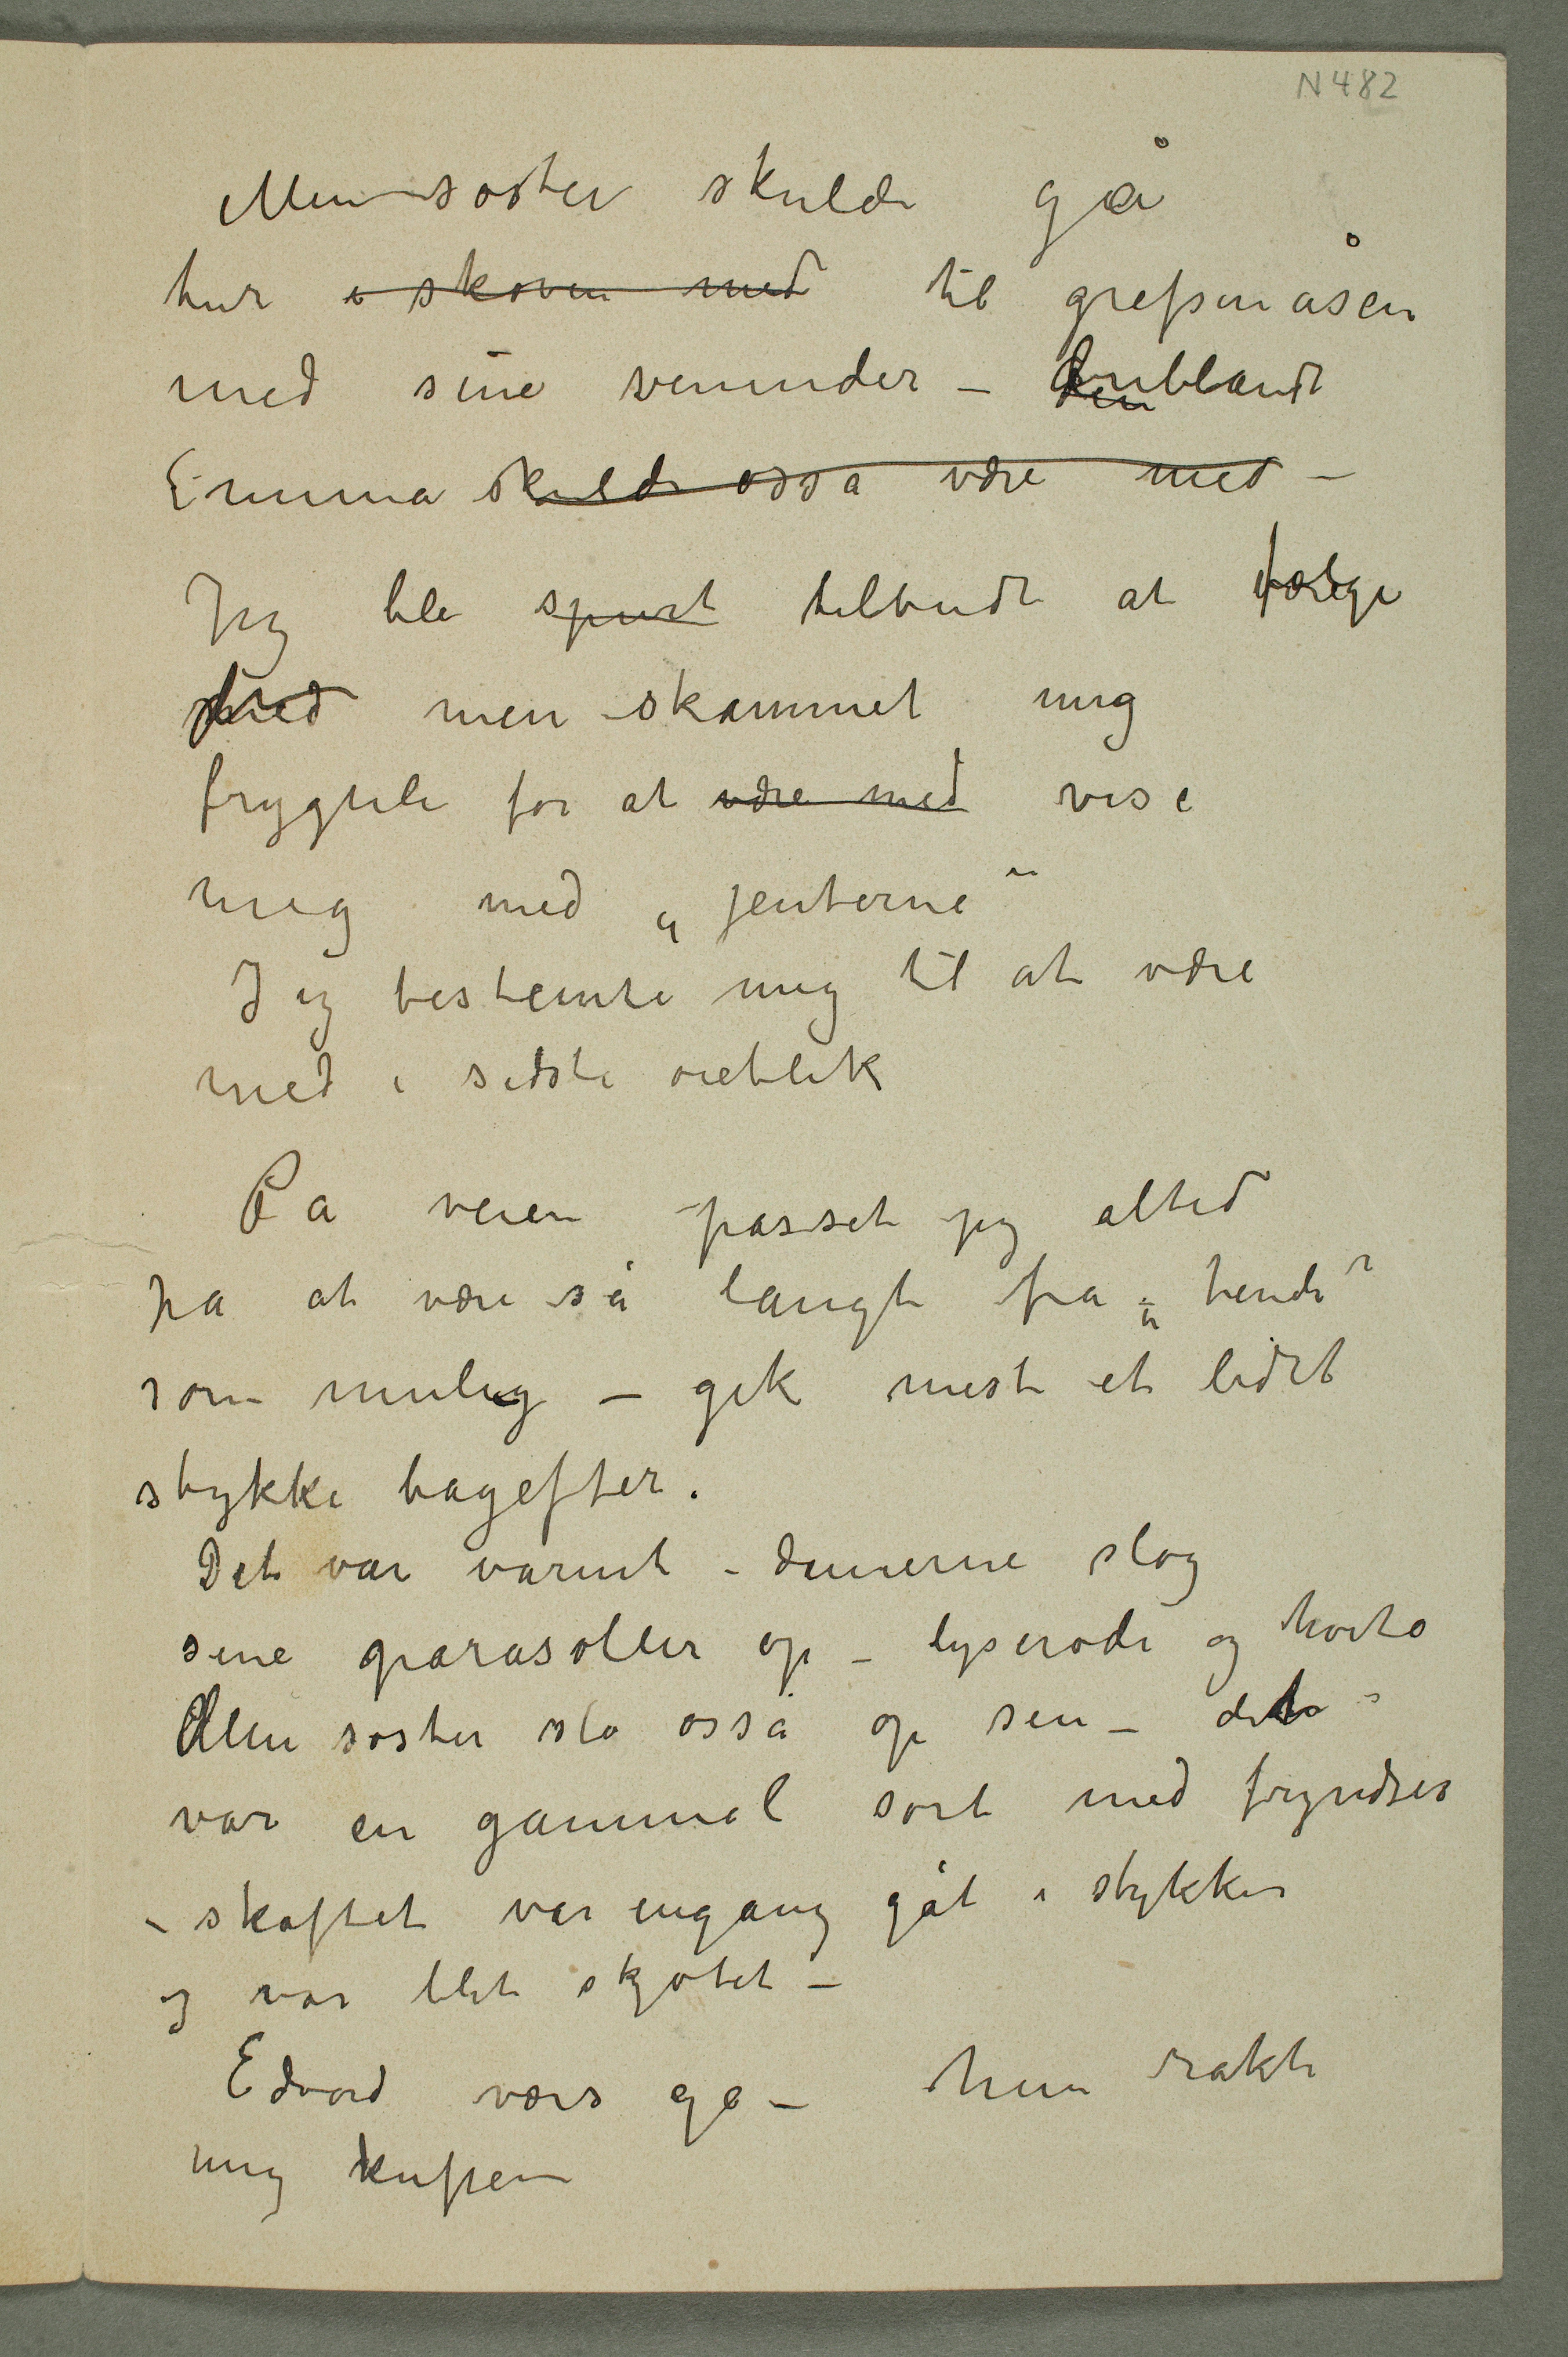 N 482
Min søster skulde gå
tur i skoven med til grefsenåsen
med sine veninder – deriblandt
Emma skulde osså være med –
Jeg ble spurt tilbudt at følge
med men skammet mig
frygteli for at være med vise
mig med „jenterne“
Jeg bestemte mig til at være
med i sidste øieblik
På veien passet jeg altid
på at være så langt fra „hende“
som mulig – gik mest et lidet
stykke bagefter.
Det var varmt – damerne slog
sine parasoller op – lyserøde og hvite
Min søster slo osså op sin – det
var en gammel sort med fryndser
– skaftet var engang gåt i stykker
og var blit skjøtet –
Edvard værs go – hun rakte
mig kufften